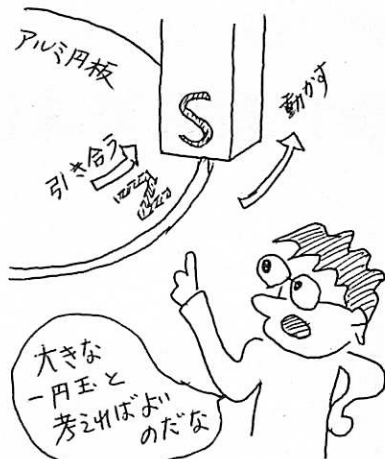 アルミ円板
S
動かす
引き合う
N
大きな
一円玉と
考えればよい
のだな